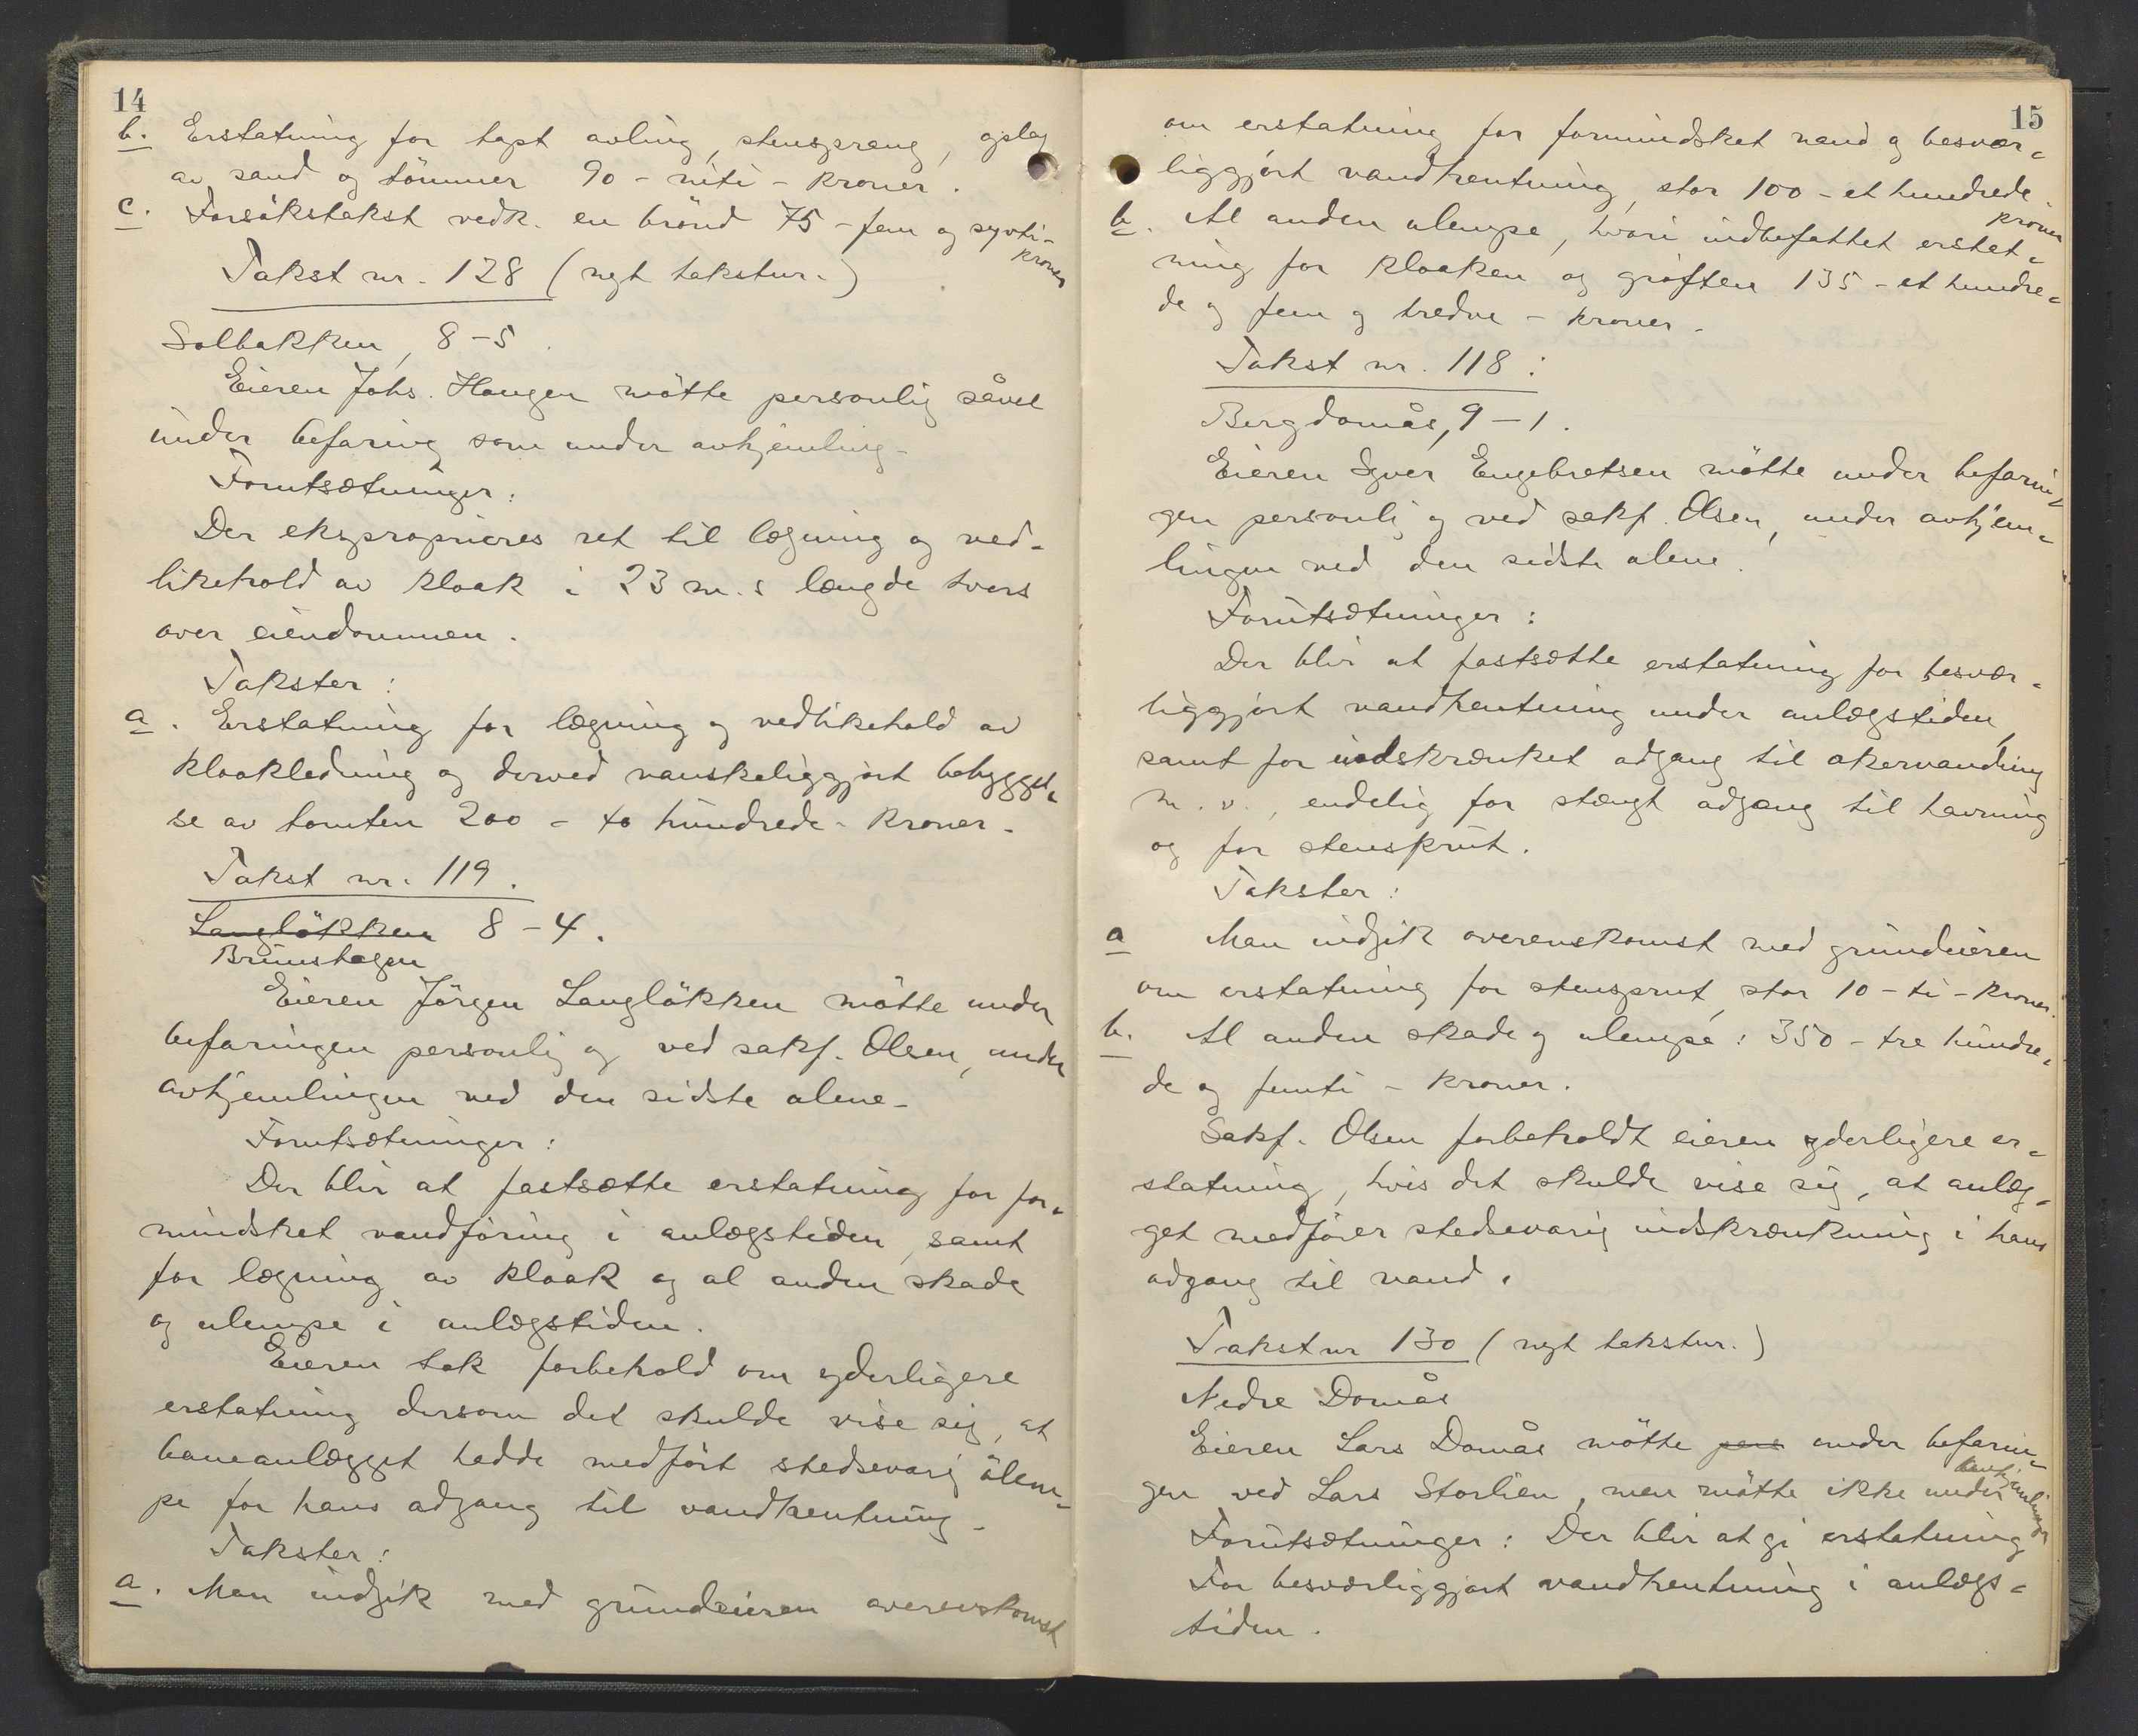 14
b. Erstatning for tapt avling, stensprang, oplag
av sand og tömmer 90 - niti - kroner.
c. Forsökstakst vedk. en brönd 75 - fem og sytti -
kroner
Takst nr. 128 (nyt takstnr.)
Solbakken, 8-5.
Eieren Johs. Haugen mötte personlig såvel
under befaring som under avhjemling.
Forutsætninger:
Der eksproprieres ret til lægning og ved-
likehold av kloak i 23 m.s længde tvers
over eiendommen.
Takster:
a. Erstatning for lægning og vedlikehold av
kloakledning og derved vanskeliggjort bebyggel-
se av tomten 200 - to hundrede - kroner.
Takst nr. 119.
Langlökken 8-4.
Brunshagen
Eieren Jörgen Langlökken mötte under
befaringen personlig og ved sakf. Olsen, under
avhjemlingen ved den sidste alene.
Forutsætninger:
Der blir at fastsætte erstatning for for-
mindsket vandföring i anlægstiden, samt
for lægning av kloak og al anden skade
og ulempe i anlægstiden.
Eieren tok forbehold om yderligere
erstatning dersom det skulde vise sig, at
baneanlægget hadde medfört stedsevarig ulem-
pe for hans adgang til vandhentning.
Takster:
a. Man indgik med grundeieren overenskomst
15
om erstatning for formindsket vand og besvær-
liggjört vandhentning, stor 100 - et hundrede
kroner
b. Al anden ulempe, hvori indbefattet erstat-
ning for kloaken og gröften 135 - et hundre-
de og fem og tredve - kroner.
Takst nr. 118:
Bergdomås, 9-1.
Eieren Iver Engebretsen mötte under befarin-
gen personlig og ved sakf. Olsen, under avhjem-
lingen ved den sidste alene.
Forutsætninger:
Der blir at fastsætte erstatning for besvær-
liggjort vandhentning under anlægstiden,
samt for indskrænket adgang til akervanding
m.v., endelig for stængt adgang til havning
og for stensprut.
Takster:
a Man indgik overenskomst med grundeieren
om erstatning for stensprut, stor 10 - ti - kroner.
b. Al anden skade og ulempe: 350 - tre hundre-
de og femti - kroner.
Sakf. Olsen forbeholdt eieren yderligere er-
statning, hvis det skulde vise sig, at anlæg-
get medförer stedsevarig indskrænkning i hans
adgang til vand.
Takst nr 130 (nyt takstnr.)
Nedre Domås
Eieren Lars Domås mötte pers under befarin-
gen ved Lars Storlien, men mötte ikke under
avhjemlingen
Forutsætninger: Der blir at gi erstatning
for besværliggjort vandhentning i anlægs-
tiden.